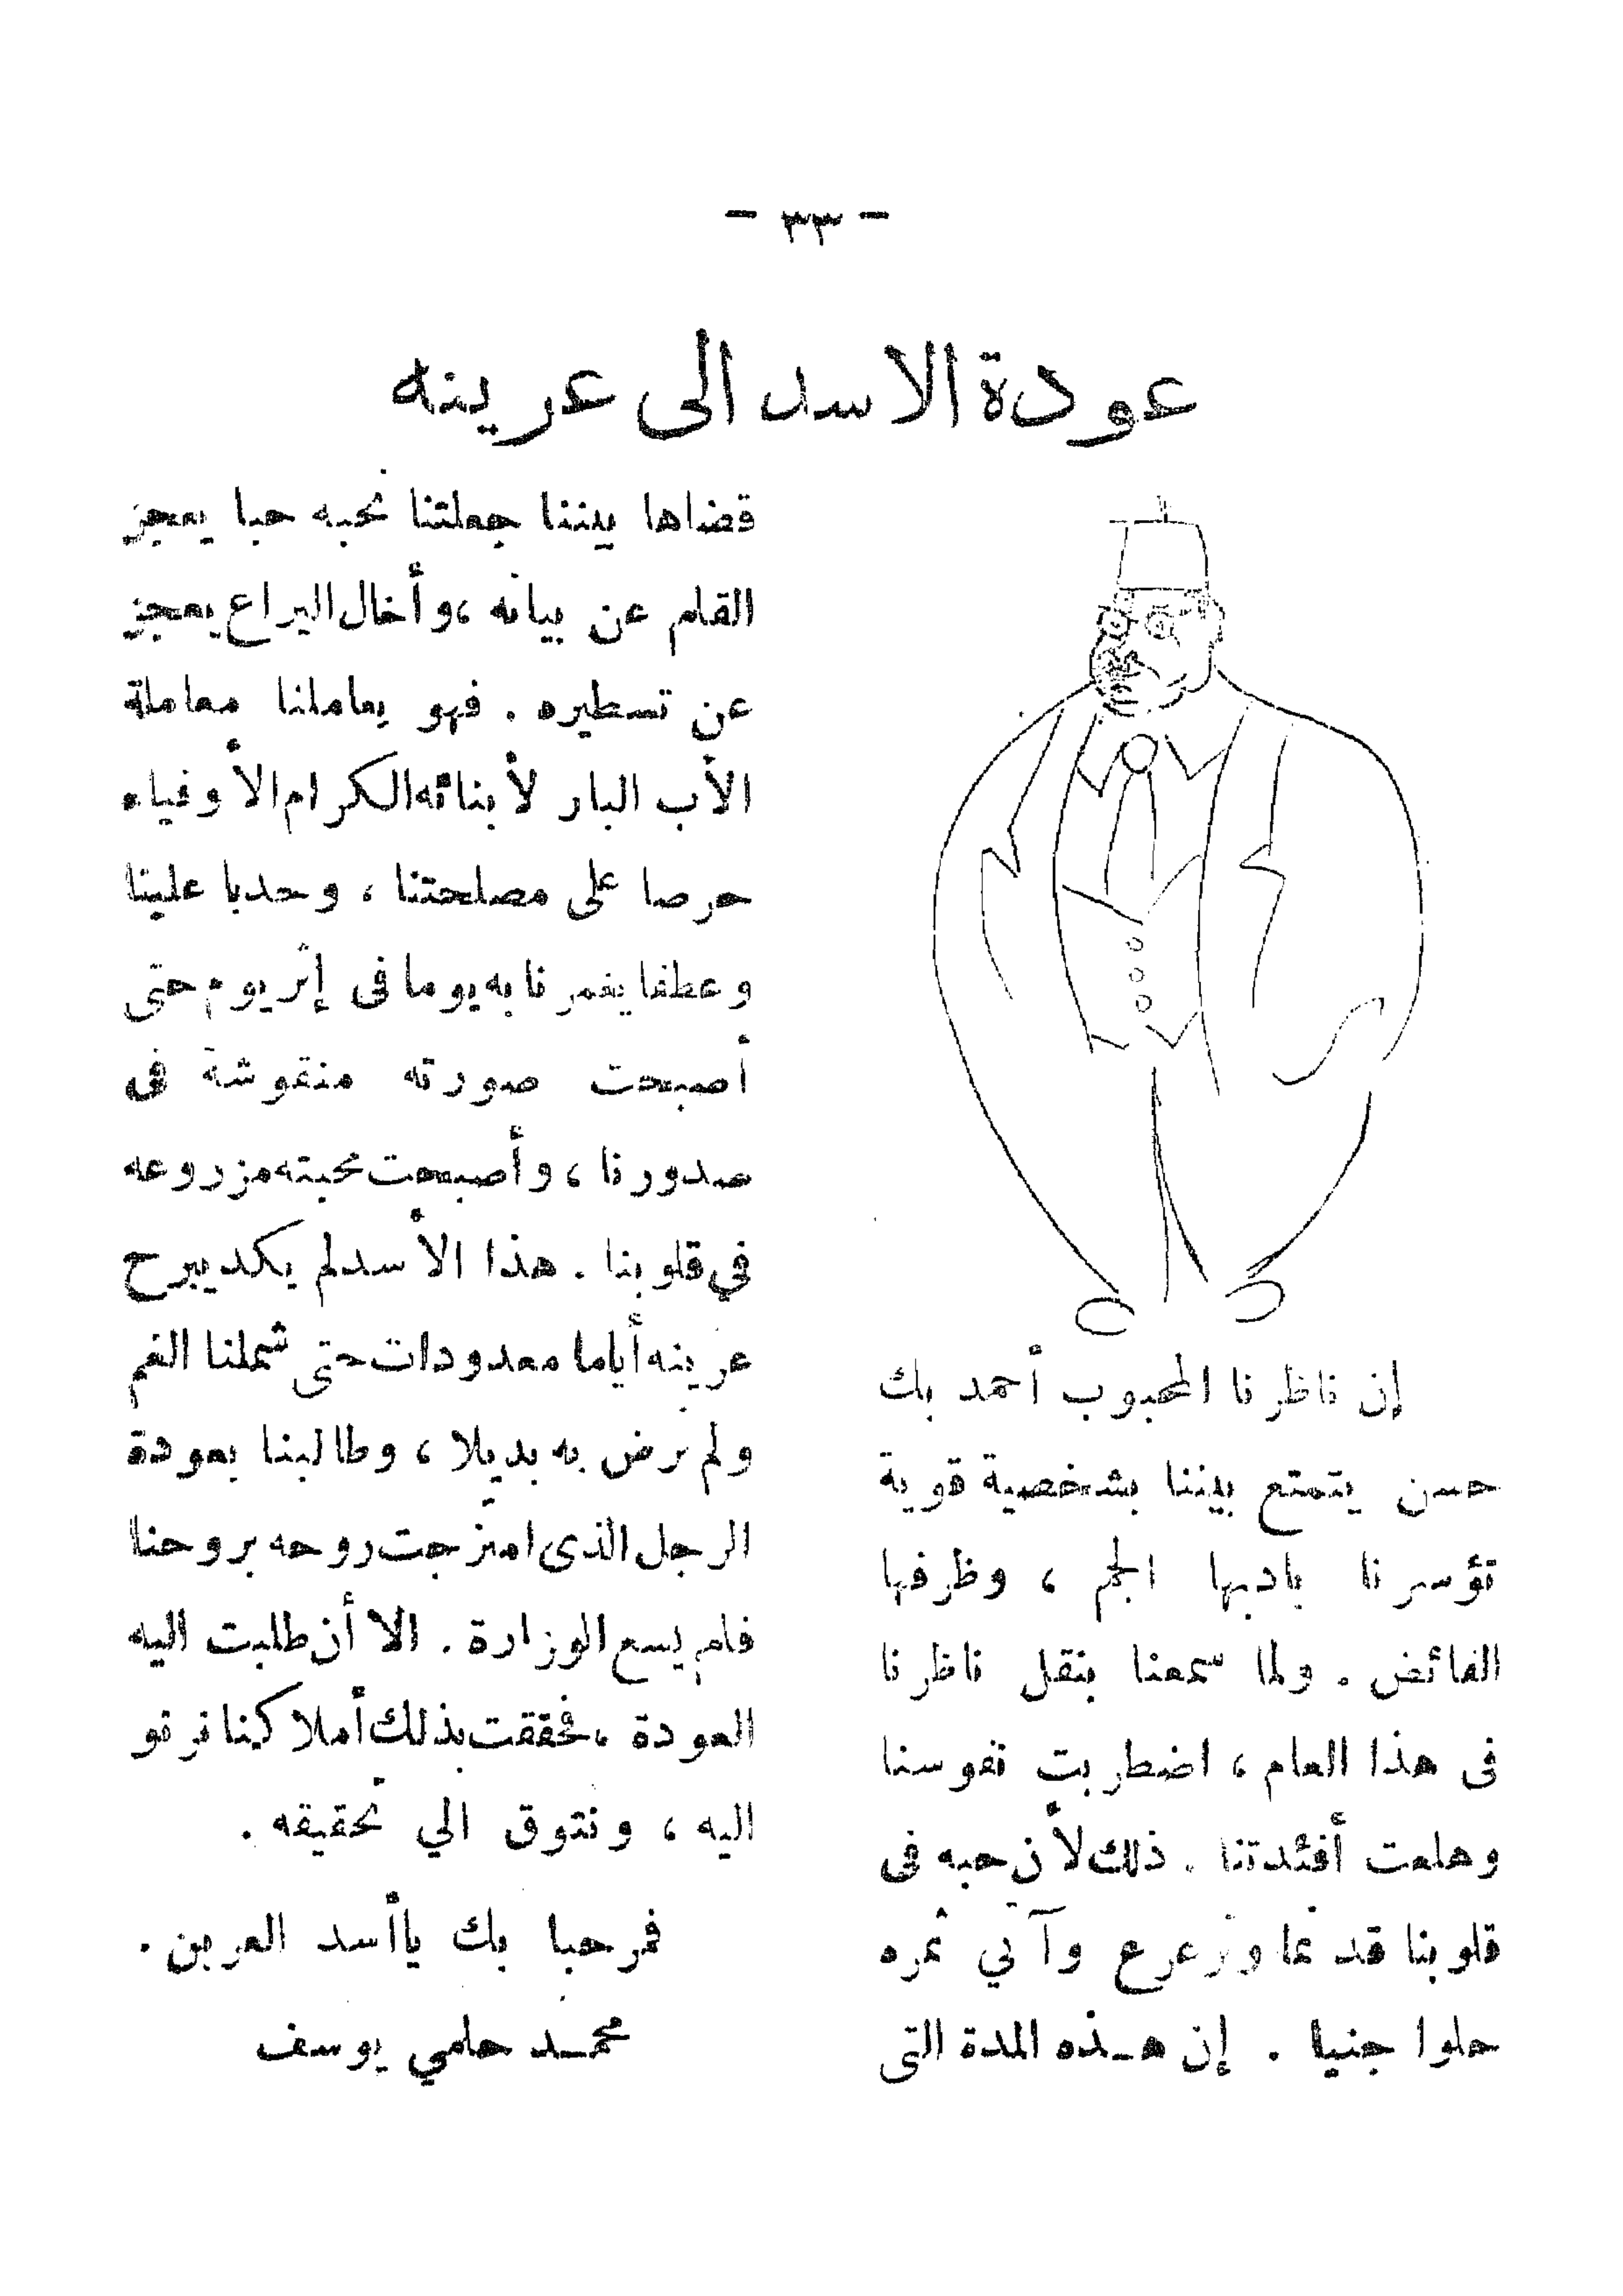 - ٣٣ -
عودة الاسد الى عرينه
إن ناظرنا المحبوب أحمد بك
حسن يتمتع بيننا بشخصية قوية
تؤسرنا بادبها الجم ، وظرفها
الفائض . ولما سمعنا بنقل ناظرنا
فى هذا العام ، اضطربت نفوسنا
وهلعت أفئدتنا . ذلك لأن حبه فى
قلوبنا قد نما وترعرع وآتي ثمره
حلوا جنيا . إن هـذه المدة التى
قضاها بيننا جعلتنا نحبه حبا يعجز
القلم عن بيانه ، وأخال اليراع يعجز
عن تسطيره . فهو يعاملنا معاملة
الأب البار لأبنائه الكرام الأوفياء
حرصا على مصلحتنا ، وحدبا علينا
وعطفا يغمرنا به يوما فى إثر يوم حتى
أصبحت صورته منقوشة فى
صدورنا ، وأصبحت محبته مزروعه
في قلوبنا . هذا الأسد لم يكد يبرح
عرينه أياما معدودات حتى شملنا الغم
ولم نرض به بديلا ، وطالبنا بعودة
الرجل الذى امتزجت روحه بروحنا
فلم يسع الوزارة . الا أن طلبت اليه
العودة ، فحققت بذلك أملا كنا نرنو
اليه ، ونتوق الي تحقيقه .
فمرحبا بك ياأسد العرين .
محمـد حلمي يوسف